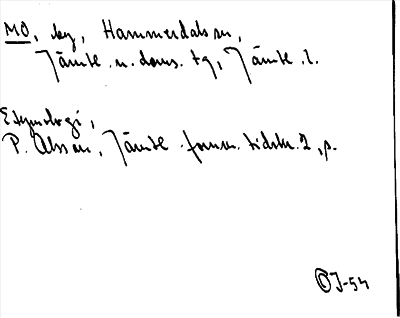 MO, by, Hammerdals sn,
Jämtl. n. doms. tg, Jämtl. l.
Etymologi,
P. Olsson, Jämtl. fornm. tidskr. 2, p.
OJ-54